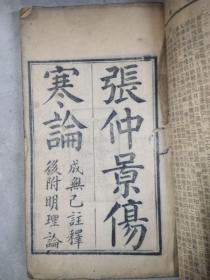 張仲景傷
寒論
成無已註釋
後附明理論